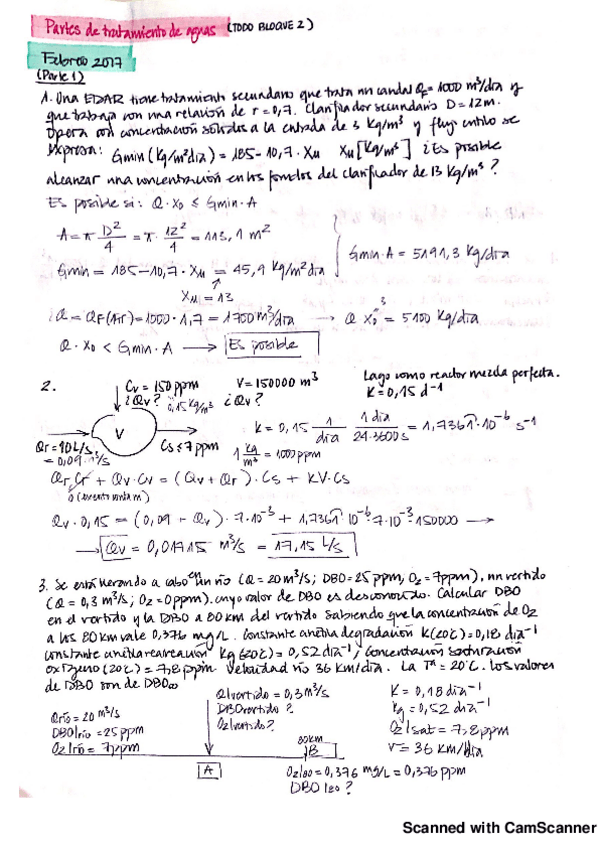 Partes de tratamiento de aguas (TODO BLOQUE 2)
Febrero 2017
(Parte 1)
1. Una EDAR tiene tratamiento secundario que trata un caudal QF = 1000 m³/día y
que trabaja con una relación de r = 0,7. Clarificador secundario D = 12m.
Opera con concentración sólidos a la entrada de 3 Kg/m³ y flujo crítico se
expresa: Gmin (Kg/m²día) = 185 - 10,7 · Xu Xu [Kg/m³] ¿Es posible
alcanzar una concentración en los fondos del clarificador de 13 Kg/m³?
Es posible si: Q · X0 ≤ Gmin · A
A = π D²/4 = π · 12²/4 = 113,1 m²
Gmin = 185 - 10,7 · Xu = 45,9 Kg/m²día
Xu = 13
Gmin · A = 5191,3 Kg/día
Q = QF(1+r) = 1000 · 1,7 = 1700 m³/día → Q X0 = 5100 Kg/día
3
Q · X0 < Gmin · A → Es posible
2.
Cv = 150 ppm
¿Qv? 0,15 Kg/m³
V = 150000 m³
¿Qv?
Lago como reactor mezcla perfecta.
K = 0,15 d⁻¹
V
Qr = 90 L/s
= 0,09 m³/s
Cs ≤ 7 ppm
K = 0,15 1/día · 1 día/24·3600 s = 1,7361·10⁻⁶ s⁻¹
1 kg/m³ = 1000 ppm
Qr Cr + Qv · Cv = (Qv + Qr) · Cs + KV · Cs
Qv · 0,15 = (0,09 + Qv) · 7·10⁻³ + 1,7361·10⁻⁶·7·10⁻³·150000 →
→ Qv = 0,01715 m³/s = 17,15 L/s
3. Se está llevando a cabo en un río (Q = 20 m³/s; DBO = 25 ppm, O2 = 7ppm), un vertido
(Q = 0,3 m³/s; O2 = 0 ppm), cuyo valor de DBO es desconocido. Calcular DBO
en el vertido y la DBO a 80 km del vertido sabiendo que la concentración de O2
a los 80 km vale 0,376 mg/L. Constante cinética degradación K(20°C) = 0,18 día⁻¹
Constante cinética reaireación Kg (20°C) = 0,52 día⁻¹, Concentración saturación
oxígeno (20°C) = 7,8 ppm. Velocidad río 36 Km/día. La Tª = 20°C. Los valores
de DBO son de DBO∞
Qrío = 20 m³/s
DBO|río = 25 ppm
O2|río = 7 ppm
Q|vertido = 0,3 m³/s
DBO|vertido?
O2|vertido?
80km
A
B
O2|80 = 0,376 mg/L = 0,376 ppm
DBO|80?
K = 0,18 día⁻¹
Kg = 0,52 día⁻¹
O2|sat = 7,8 ppm
V = 36 Km/día
Scanned with CamScanner